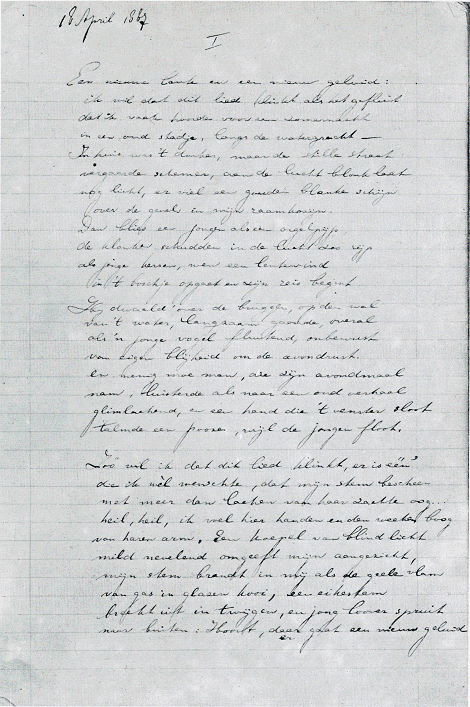 18 April 1887
I
Een nieuwe lente en een nieuw geluid:
ik wil dat dit lied klinkt als het gefluit
dat ik vaak hoorde voor een zomernacht
in een oud stadje, langs de watergracht —
In huis was 't donker, maar de stille straat
vergaarde schemer, aan de lucht blonk laat
nog licht, er viel een gouden blanke schijn
over de gevels in mijn raamkozijn.
Dan blies een jongen als een orgelpijp,
de klanken schudden in de lucht zoo rijp
als jonge kersen, wen een lentewind
in 't boschje opgaat en zijn reis begint
Hij dwaald' over de bruggen, op den wal
van 't water, langzaam gaande, overal
als 'n jonge vogel fluitend, onbewust
van eigen blijheid om de avondrust.
En menig moe man, die zijn avondmaal
nam, luisterde als naar een oud verhaal
glimlachend, en een hand die 't venster sloot
talmde een poos, wijl de jongen floot.
Zóó wil ik dat dit lied klinkt, er is één
die ik wèl wenschte, dat mijn stem bescheen
met meer dan lachen van haar zachte oog...
heil, heil, ik voel hier handen en den weeken boog
van haren arm. Een koepel van blind licht
mild nevelend omgeeft mijn aangezicht,
mijn stem brandt in mij als de geele vlam
van gas in glazen kooi, een eikestam
breekt uit in twijgen, en jong loover spruit
naar buiten: Hoort, daar gaat een nieuw geluid
er